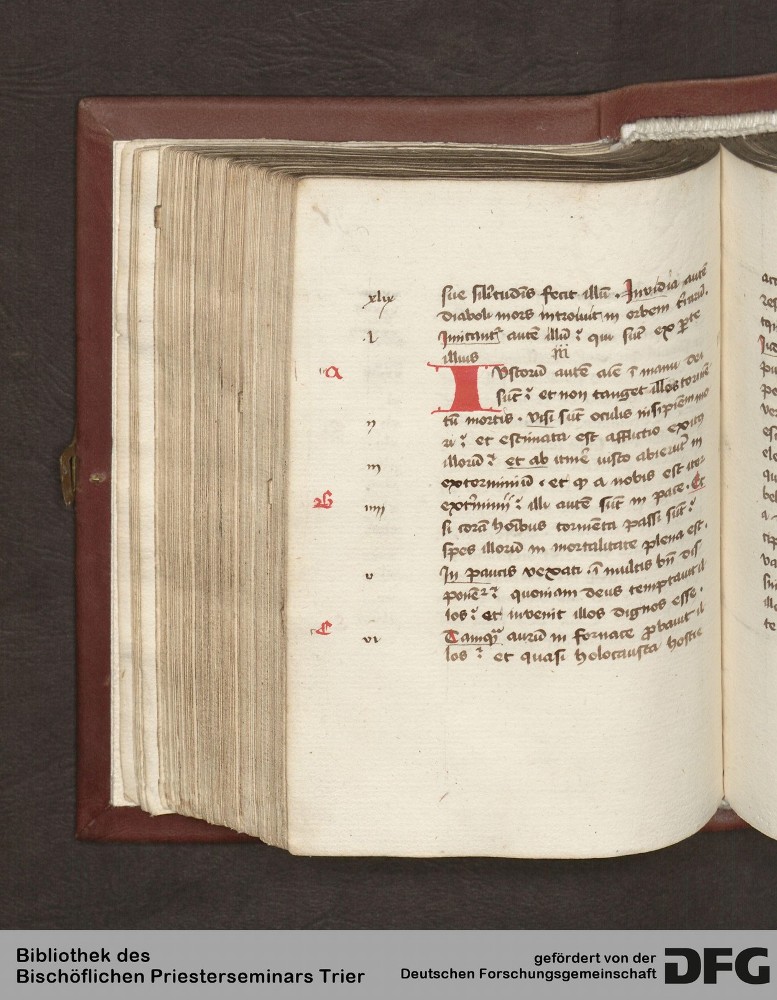 xlix sue silitudis fecit illu . Invidia aute
diaboli mors introivit in orbem trarum.
l Imitant aute illu : qui sut ex pte
illius iii
a Iustoru autem aie i manu dei
sut : et non tanget illos tormen
ii tu mortis . Visi sut oculis insipientium mo
ri : et estimata est afflictio exitus
iii illoru : et ab itinere iusto abierut in
exterminiu . et qd a nobis est iter
b iiii extminii : illi aute sut in pace . Et
si cora hoibus tormeta passi sut :
spes illoru in mortalitate plena est .
v In paucis vexati . i multis bn dis
ponet : quoniam deus temptavit il
los : et invenit illos dignos esse .
c vi Tamq auru in fornace pbavit il
los : et quasi holocausta hostie
Bibliothek des
Bischöflichen Priesterseminars Trier
gefördert von der
Deutschen Forschungsgemeinschaft
DFG